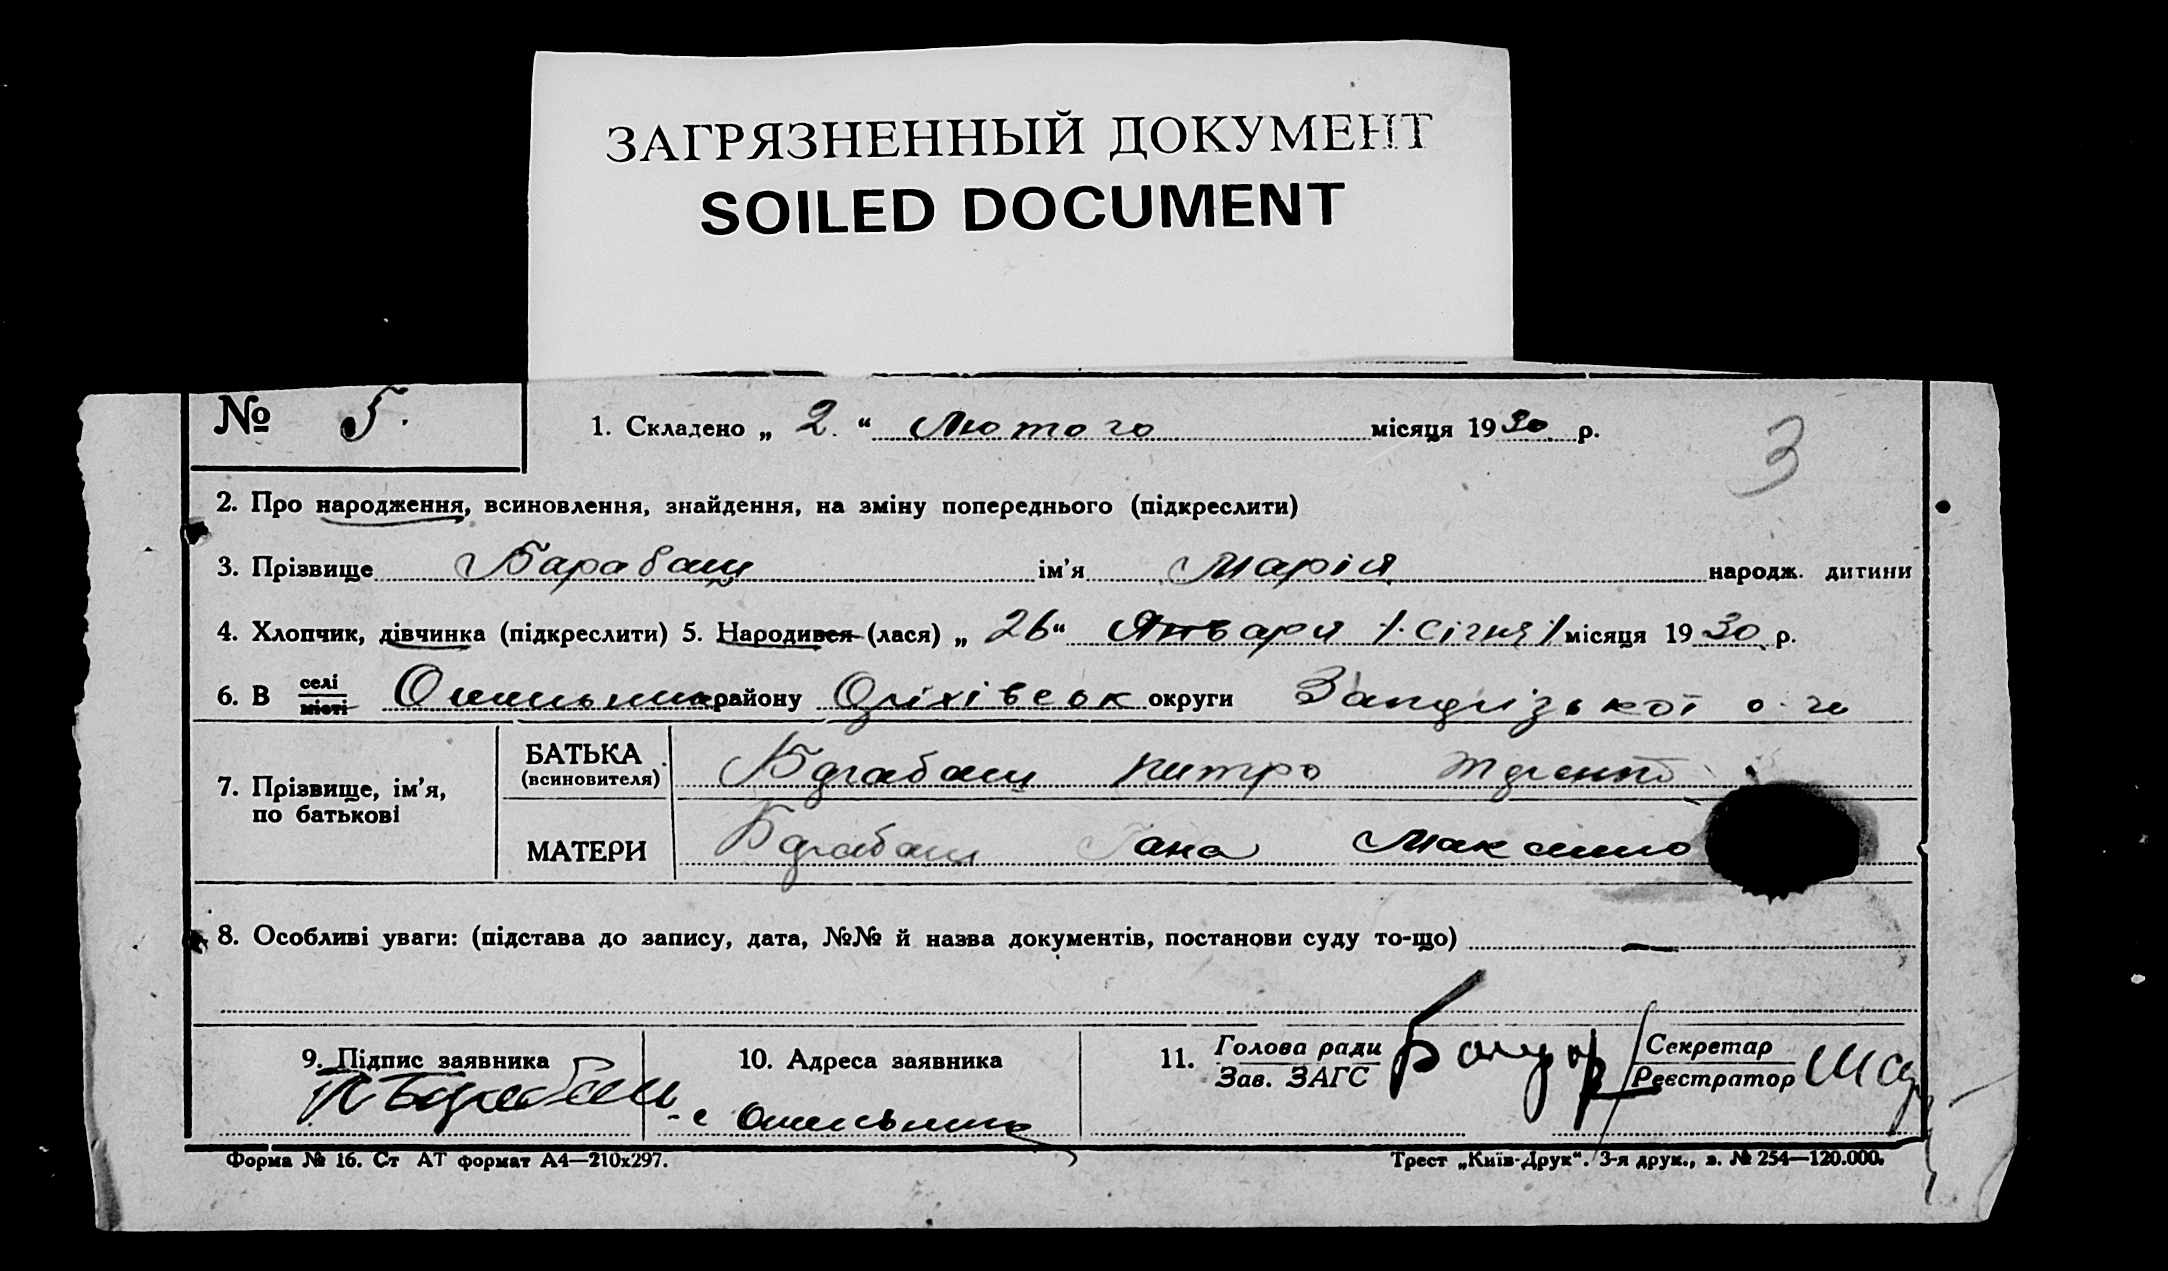 ЗАГРЯЗНЕННЫЙ ДОКУМЕНТ
SOILED DOCUMENT
№ 5.
1. Складено „ 2. “ Лютого місяця 1930 р.
3
2. Про народження, всиновлення, знайдення, на зміну попереднього (підкреслити)
3. Прізвище Барабаш ім’я Марія народж. дитини
4. Хлопчик, дівчинка (підкреслити) 5. Народився (лася) „ 26 “ Января /. Січня / місяця 1930 р.
6. В селі місті району Оріхівськ округи
7. Прізвище, ім’я, по батькові
БАТЬКА (всиновителя) Барабаш
МАТЕРИ Барабаш Гана
8. Особливі уваги: (підстава до запису, дата, №№ й назва документів, постанови суду то-що) —
9. Підпис заявника
10. Адреса заявника
11. Голова ради Зав. ЗАГС
Секретар Реєстратор
Форма № 16. Ст АТ формат А4—210х297.
Трест „Київ-Друк“. 3-я друк., з. № 254—120.000.